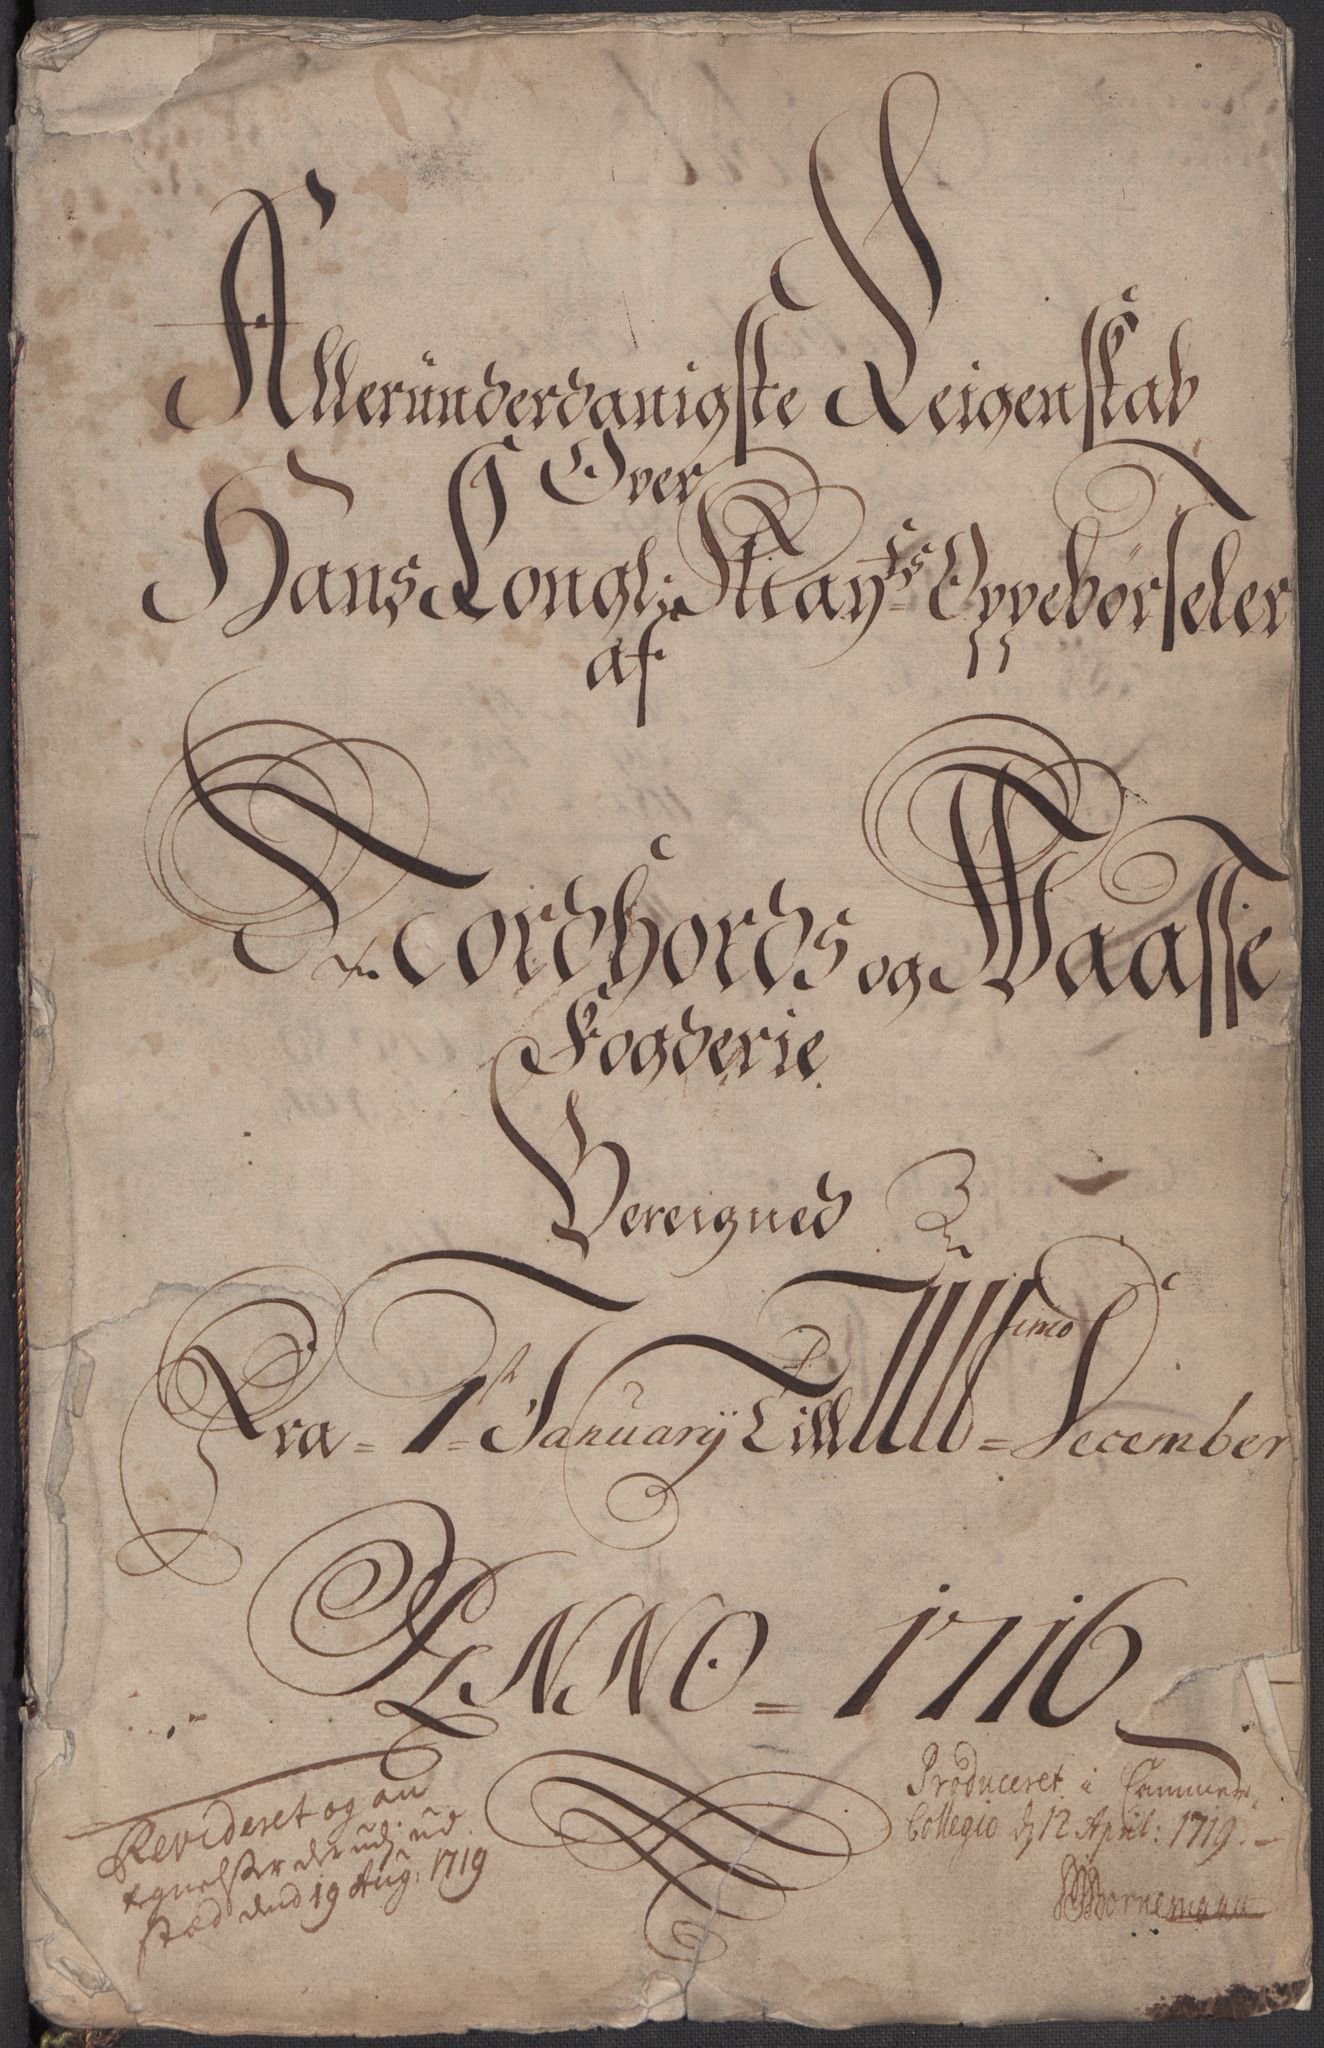 Alleründerdanigste Reigenskab
Over
Hans Kongl: Mayts Oppebörseler
af
Nordhords og Waasse
Fogderie
Bereigned
Fra = 1st = January Till Ultimo = December
ANNO = 1716
Revideret og an
tegnelser der udj ud
stæd dend 19 Aug: 1719
Produceret i Cammer
Collegio d 12 April: 1719.
Bornemann